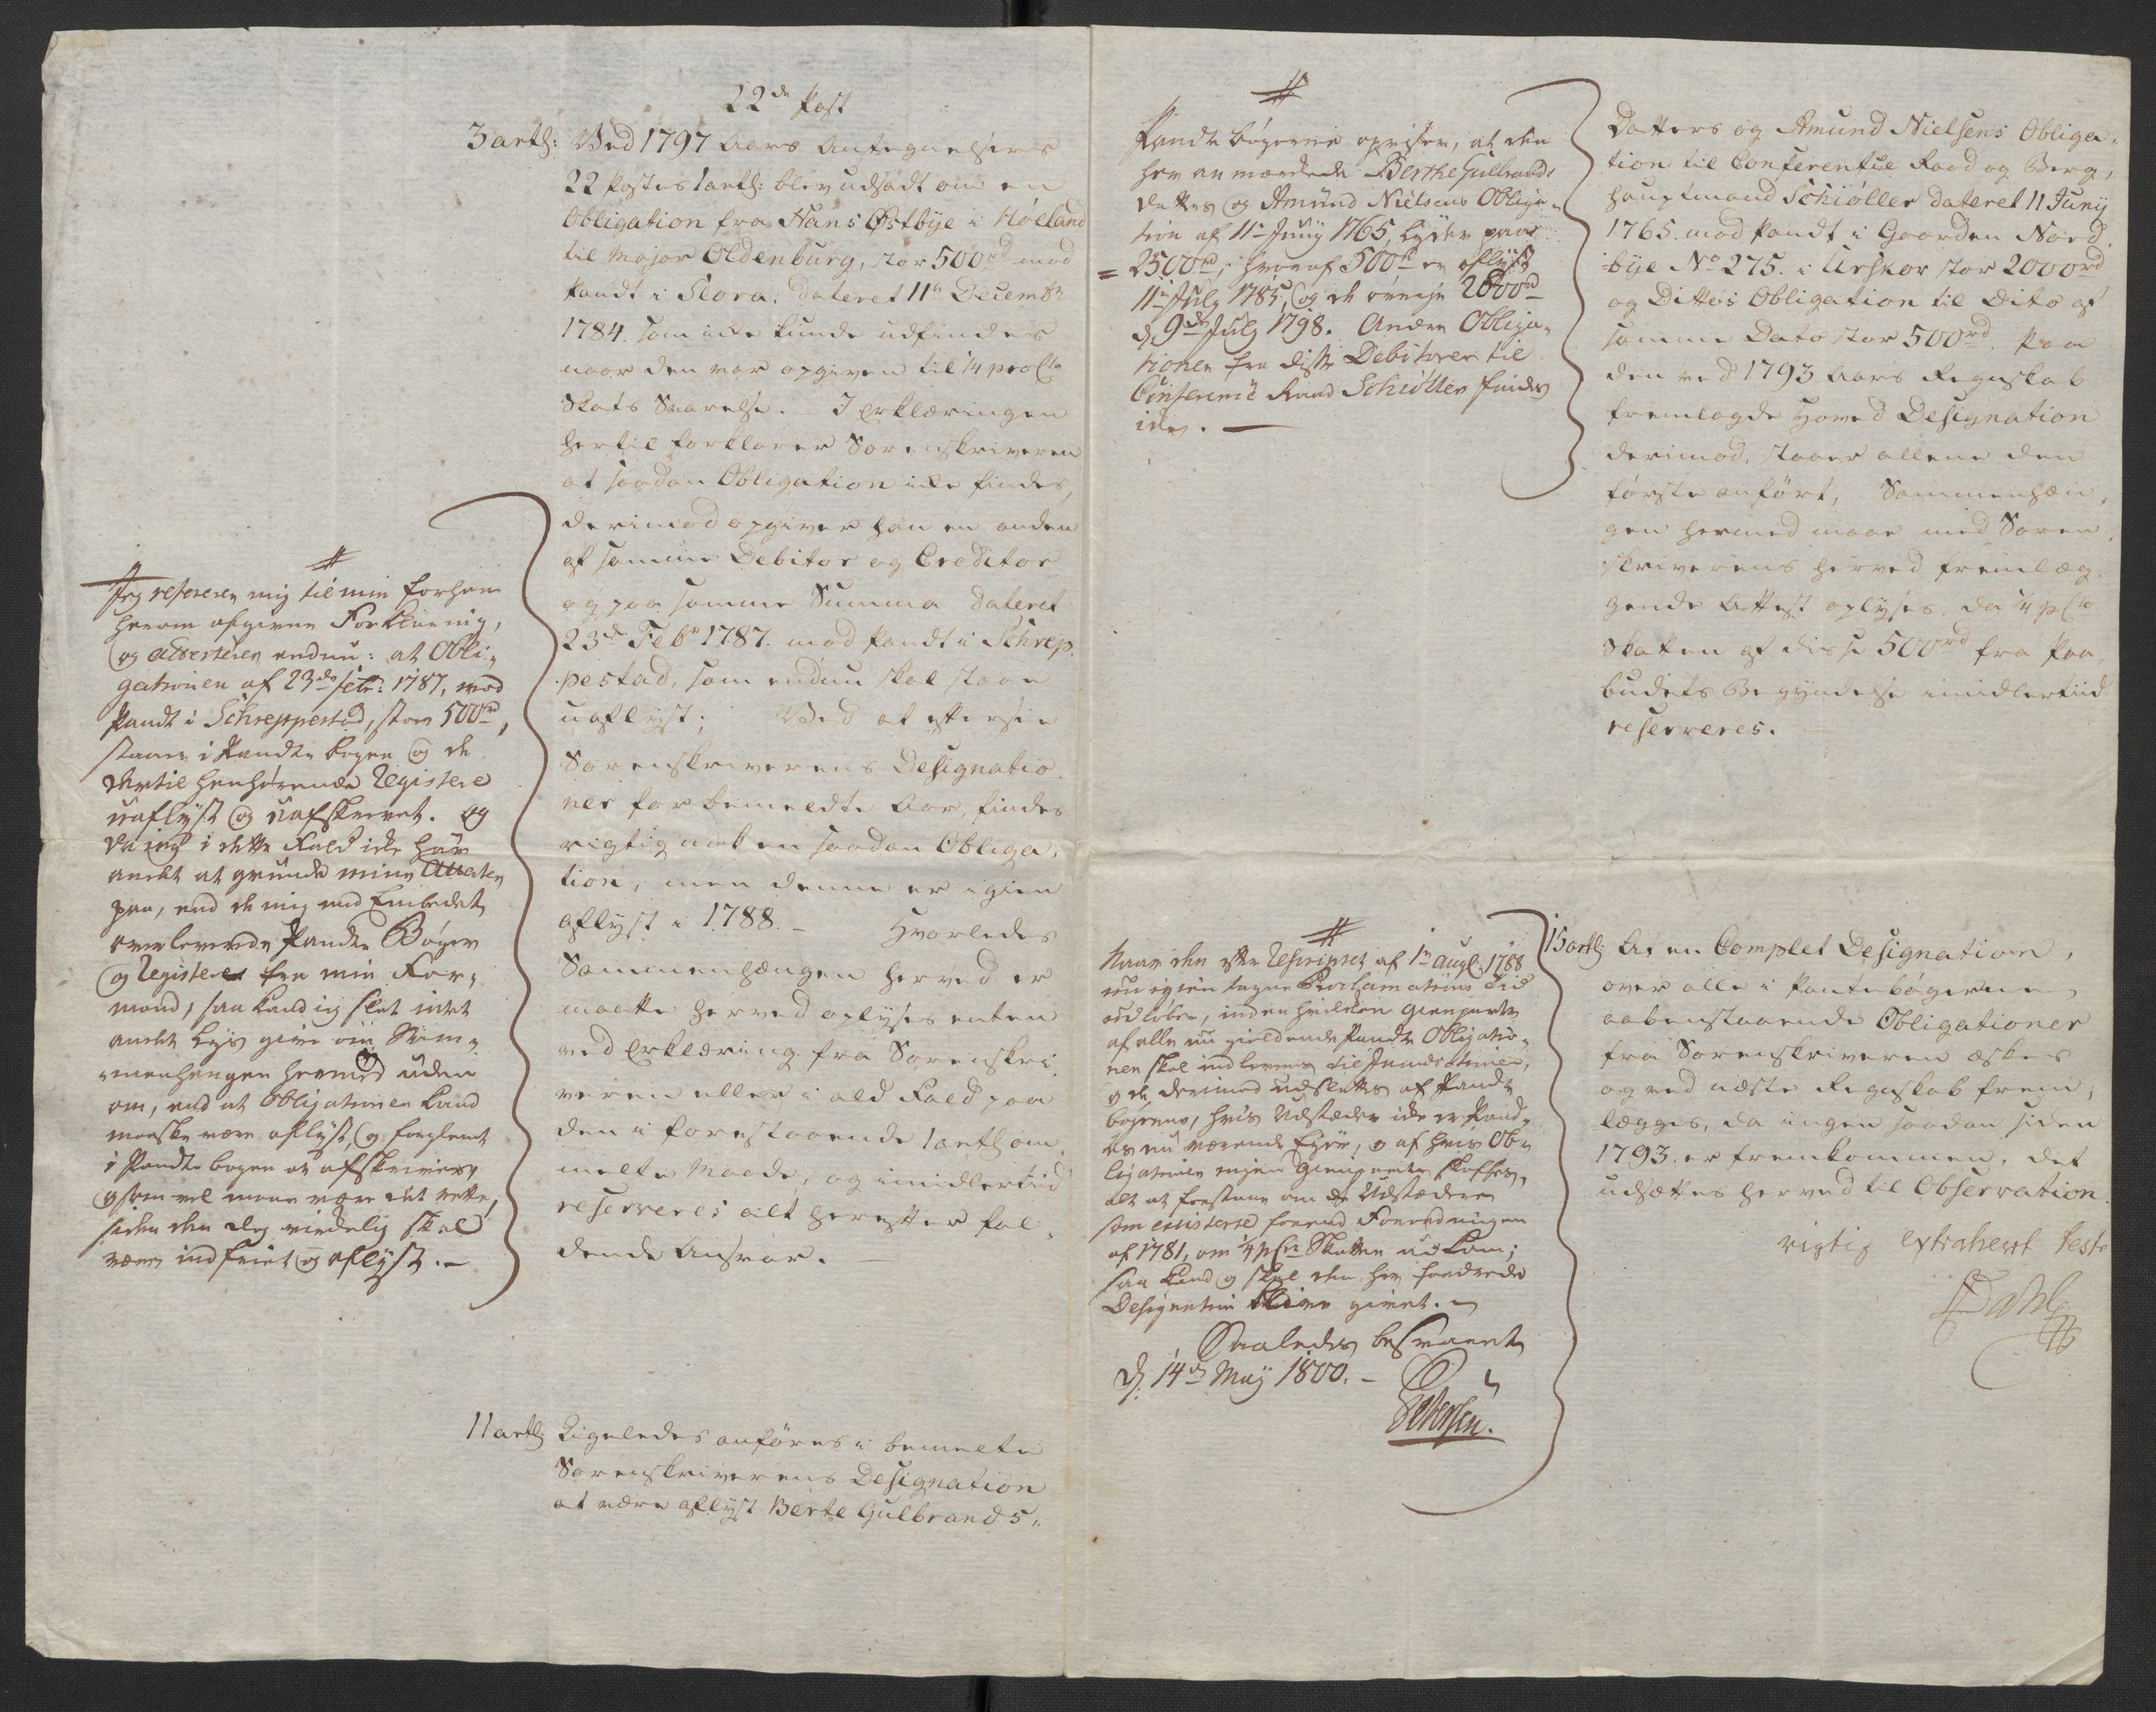 22de Post
3 artl: Ved 1797 Aars Antegnelsers
22 Postes 1 artl: blev udsadt om en
Obligation fra Hans Østbye i Höeland
til Major Oldenburg, stor 500rd mod
Pandt i Slora. dateret 11te Decembr
1784. som icke kunde udfindes
naar den var opgiven til 1/4 proCto
Skats Svarelse. I Erklæringen
hertil forklarer Sorenskriveren
at saadan Obligation icke findes,
derimod opgiver han en anden
af samme Debitor og Creditor
og paa samme Summa dateret
23de Febr 1787. mod Pandt i Schrep-
pestad, som endnu skal staae
uaflyst; Ved at eftersee
Sorenskriverens Designatio-
ner for bemeldte Aar, findes
rigtig nok en saadan Obliga-
tion, men denne er igien
aflyst i 1788. - Hvorledes
Sammenhængen herved er
maatte herved oplyses enten
ved Erklæring fra Sorenskri-
veren eller i ald Fald paa
den i forestaaende 1 artl om-
melte Maade, og imidlertiid
reserveres alt herefter fal-
dende Ansvar. -
#
Jeg refererer mig til min forhen
herom afgivne Forklaring,
og adverterer endnu: at Obli-
gationen af 23de Febr: 1787, mod
Pandt i Schreppestad, stor 500rd,
staaer i Pandte bogen og de
dertil henhörende Registere
uaflyst og uafskrevet. og
da jeg i dette Fald icke har
andet at grunde mine Attester
paa, end de mig ved Embedet
overleverede Pandte Bøger
og Registere fra min For-
mand, saa kand jeg slet intet
andet Lys give om Sam-
menhængen hermed uden
om, end at Obligationen kand
maaske være aflyst, og forglemt
i Pandte bogen at afskrives,
som vel maae være det rette,
siden den dog virkelig skal
være indfriet og aflyst. -
11 artl: Ligeledes anføres i bemelte
Sorenskriverens Designation
at være aflyst Berte Gulbrands-
#
Pandte bögerne opviser, at den
her anmældede Berthe Gulbrands
datters og Amund Nielsens Obliga-
tion af 11te Juny 1765, lyder paa
= 2500rd; hvoraf 500rd er aflyst
11te July 1785, og de övrige 2000rd
d. 9de July 1798. Anden Obliga-
tioner fra disse Debitorer til
Conferenz Raad Schiöller findes
icke. -
Datters og Amund Nielsens Obliga-
tion til Conferentze Raad og Berg-
hauptmand Schiöller dateret 11 Juny
1765. mod Pandt i Gaarden Nord-
bye No 275. i Urskor stor 2000rd
og Dittos Obligation til Dito af
samme Dato stor 500rd. Paa
den ved 1793 Aars Regnskab
fremlagde Hoved Designation
derimod, staaer allene den
förste anfört, Sammenhæn-
gen hermed maae med Soren-
skriverens herved fremlæg-
gende Attest oplyses, da 1/4 pCto
Skatten af disse 500rd fra Paa-
budets Begyndelse imidlertiid
reserveres.
#
Naar den efter Rescriptet af 1te Aug: 1788
nu igien tagne Proclamations Tid
udlöber, inden hvilken Gienparter
af alle nu gieldende Pandte Obligatio-
ner skal indleveres til
og de derimod udslettes af Pandte
bögerne, hvis Udstæder icke er Pand-
tes nu værende Ejere, og af hvis Ob-
ligationer ingen Gienparter skaffes,
alt at forstaae om de Udstædere
som existerte forend Forordningen
af 1781, om 1/4 pCto Skatten udkom;
saa kand og skal den her fordrede
Designation blive givet. -
Saaledes besvaret
d. 14de May 1800. -
Petersen.
15 artl: At en Complet Designation,
over alle i Pantebögerne
aabenstaaende Obligationer
fra Sorenskriveren æskes
og ved næste Regnskab frem-
lægges, da ingen saadan siden
1793. er fremkommen, det
udsættes herved til Observation.
rigtig extraheert test:
Dahl